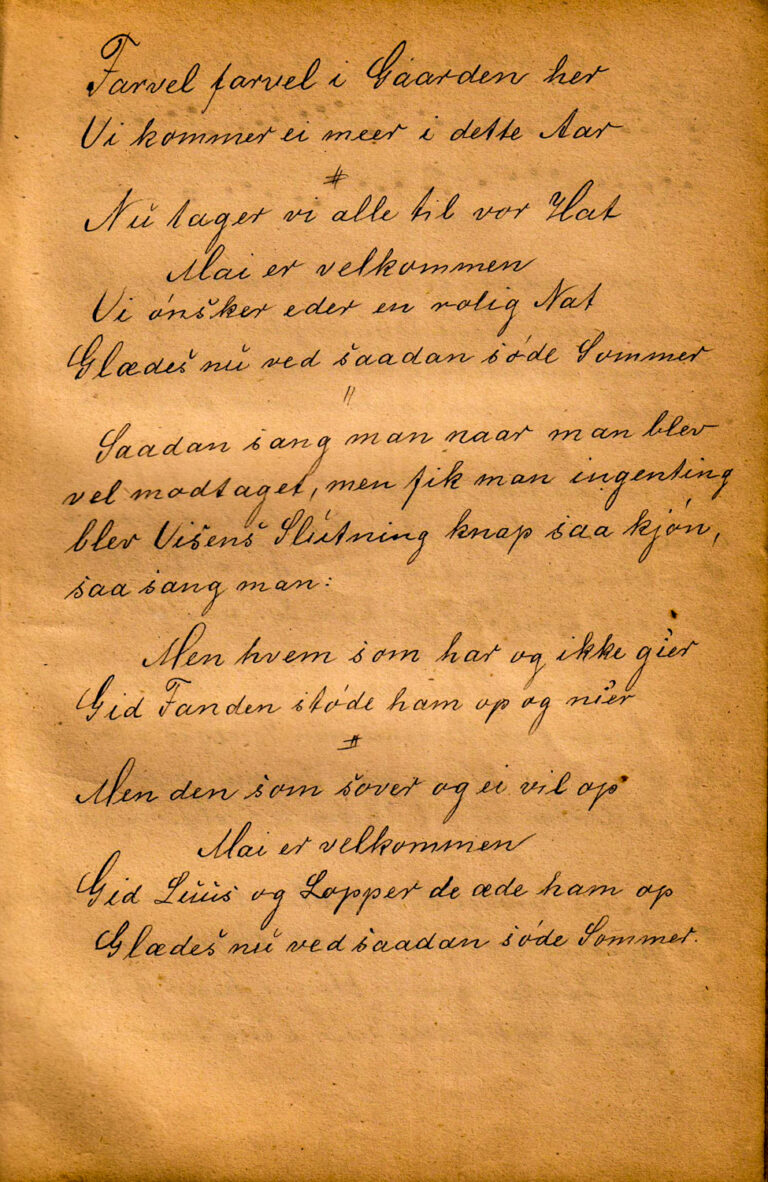 Farvel farvel i Gaarden her
Vi kommer ei meer i dette Aar
#
Nu tager vi alle til vor Hat
Mai er velkommen
Vi ønsker eder en rolig Nat
Glædes nu ved saadan søde Sommer
"
Saadan sang man naar man blev
vel modtaget, men fik man ingenting
blev Visens Slutning knap saa kjøn,
saa sang man:
Men hvem som har og ikke gier
Gid Fanden støde ham op og nier
#
Men den som sover og ei vil op
Mai er velkommen
Gid Luus og Lopper de æde ham op
Glædes nu ved saadan søde Sommer.